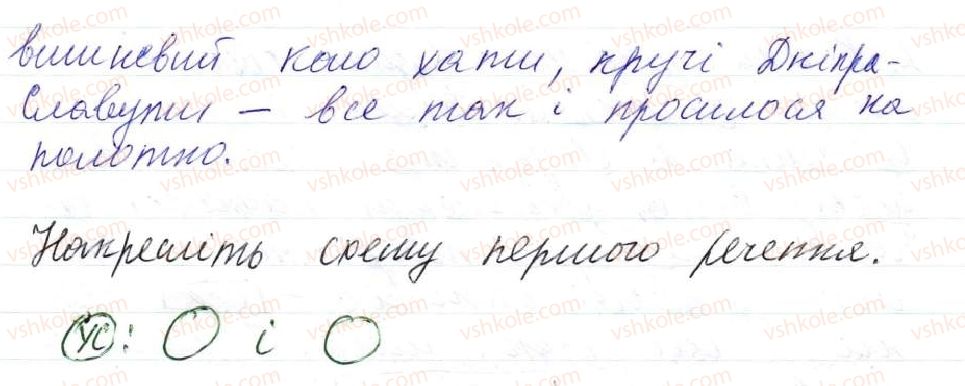 вишневий коло хати, кручі Дніпра-
Славути – все так і просилося на
полотно.
Накресліть схему першого речення.
УС : О і О